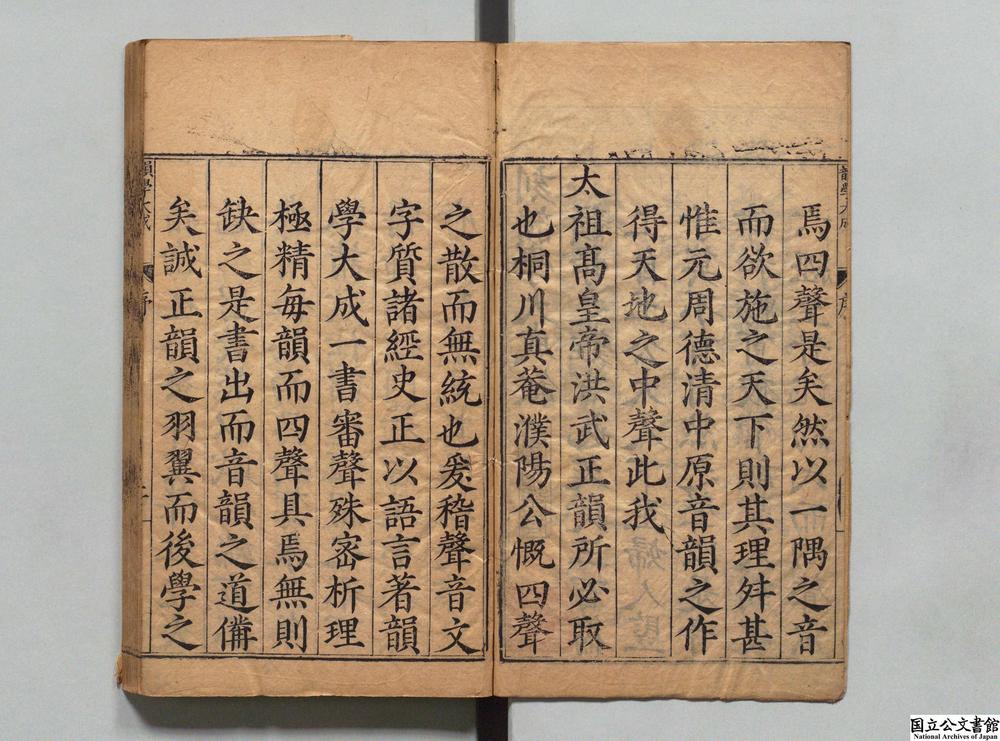 焉四聲是矣然以一隅之音
而欲施之天下則其理舛甚
惟元周德清中原音韻之作
得天地之中聲此我
太祖髙皇帝洪武正韻所必取
也桐川真菴濮陽公慨四聲
之散而無統也爰稽聲音文
字質諸經史正以語言著韻
學大成一書審聲殊宻析理
極精每韻而四聲具焉無則
缺之是書出而音韻之道備
矣誠正韻之羽翼而後學之
韻學大成
序
韻學大成
序
国立公文書館
National Archives of Japan